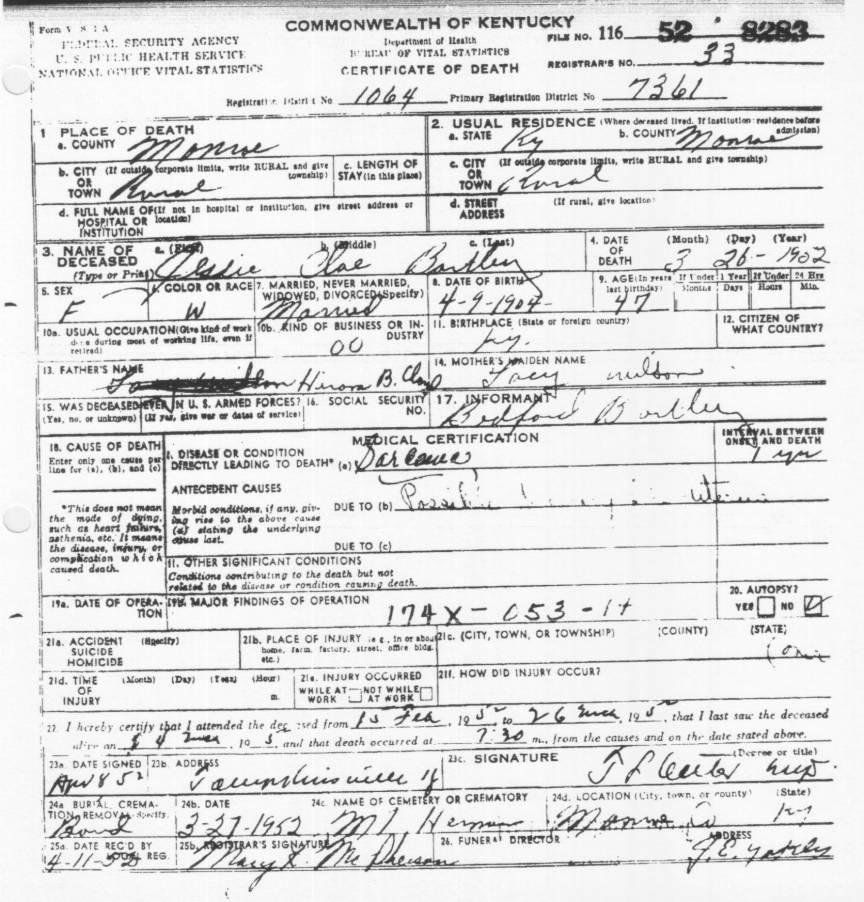 COMMONWEALTH OF KENTUCKY
Form V S 1 A
FEDERAL SECURITY AGENCY
U. S. PUBLIC HEALTH SERVICE
NATIONAL OFFICE VITAL STATISTICS
Department of Health
BUREAU OF VITAL STATISTICS
CERTIFICATE OF DEATH
FILE NO. 116 52 8283
REGISTRAR'S NO. 33
Registration District No 1064 Primary Registration District No 7361
1 PLACE OF DEATH
a. COUNTY Monroe
2. USUAL RESIDENCE (Where deceased lived. If institution: residence before admission)
a. STATE Ky b. COUNTY Monroe
b. CITY (If outside corporate limits, write RURAL and give township)
OR TOWN Rural
c. LENGTH OF STAY (in this place)
c. CITY (If outside corporate limits, write RURAL and give township)
OR TOWN Rural
d. FULL NAME OF (If not in hospital or institution, give street address or location)
HOSPITAL OR INSTITUTION
d. STREET ADDRESS (If rural, give location)
3. NAME OF DECEASED (Type or Print)
a. (First) b. (Middle) c. (Last)
Bartley
4. DATE OF DEATH (Month) (Day) (Year)
3 26 - 1952
5. SEX F
6. COLOR OR RACE W
7. MARRIED, NEVER MARRIED, WIDOWED, DIVORCED (Specify) Married
8. DATE OF BIRTH 4-9-1904
9. AGE (In years last birthday) 47
If Under 1 Year Months Days
If Under 24 Hrs Hours Min.
10a. USUAL OCCUPATION (Give kind of work done during most of working life, even if retired)
10b. KIND OF BUSINESS OR INDUSTRY
00
11. BIRTHPLACE (State or foreign country) Ky.
12. CITIZEN OF WHAT COUNTRY?
13. FATHER'S NAME Hiram B.
14. MOTHER'S MAIDEN NAME Wilson
15. WAS DECEASED EVER IN U. S. ARMED FORCES? (Yes, no, or unknown) (If yes, give war or dates of service)
16. SOCIAL SECURITY NO.
17. INFORMANT Bedford Bartley
18. CAUSE OF DEATH
Enter only one cause per line for (a), (b), and (c)
MEDICAL CERTIFICATION
INTERVAL BETWEEN ONSET AND DEATH
I. DISEASE OR CONDITION DIRECTLY LEADING TO DEATH* (a)
1 yr
*This does not mean the mode of dying, such as heart failure, asthenia, etc. It means the disease, injury, or complication which caused death.
ANTECEDENT CAUSES
Morbid conditions, if any, giving rise to the above cause (a) stating the underlying cause last.
DUE TO (b)
DUE TO (c)
11. OTHER SIGNIFICANT CONDITIONS
Conditions contributing to the death but not related to the disease or condition causing death.
19a. DATE OF OPERATION
19b. MAJOR FINDINGS OF OPERATION
174X-053-1+
20. AUTOPSY?
YES NO
21a. ACCIDENT SUICIDE HOMICIDE (Specify)
21b. PLACE OF INJURY (e.g., in or about home, farm, factory, street, office bldg. etc.)
21c. (CITY, TOWN, OR TOWNSHIP) (COUNTY) (STATE)
21d. TIME OF INJURY (Month) (Day) (Year) (Hour) m.
21e. INJURY OCCURRED
WHILE AT WORK NOT WHILE AT WORK
21f. HOW DID INJURY OCCUR?
22. I hereby certify that I attended the deceased from 15 Feb, 1952 to 26, 195, that I last saw the deceased
alive on, 195, and that death occurred at 7:30 m., from the causes and on the date stated above.
23a. DATE SIGNED Apr 8 52
23b. ADDRESS Tompkinsville
23c. SIGNATURE (Degree or title)
24a. BURIAL, CREMATION, REMOVAL (Specify)
24b. DATE 3-27-1952
24c. NAME OF CEMETERY OR CREMATORY
24d. LOCATION (City, town, or county) (State)
Monroe Co Ky
25a. DATE REC'D BY LOCAL REG. 4-11-52
25b. REGISTRAR'S SIGNATURE Mary K. McPherson
26. FUNERAL DIRECTOR ADDRESS
J. E.